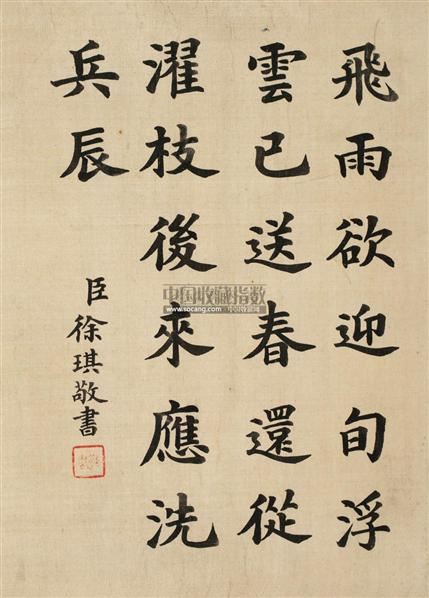 飛雨欲迎旬浮
雲已送春還從
濯枝後來應洗
兵辰
臣徐琪敬書
中国收藏指数
www.socang.com 中国收藏网